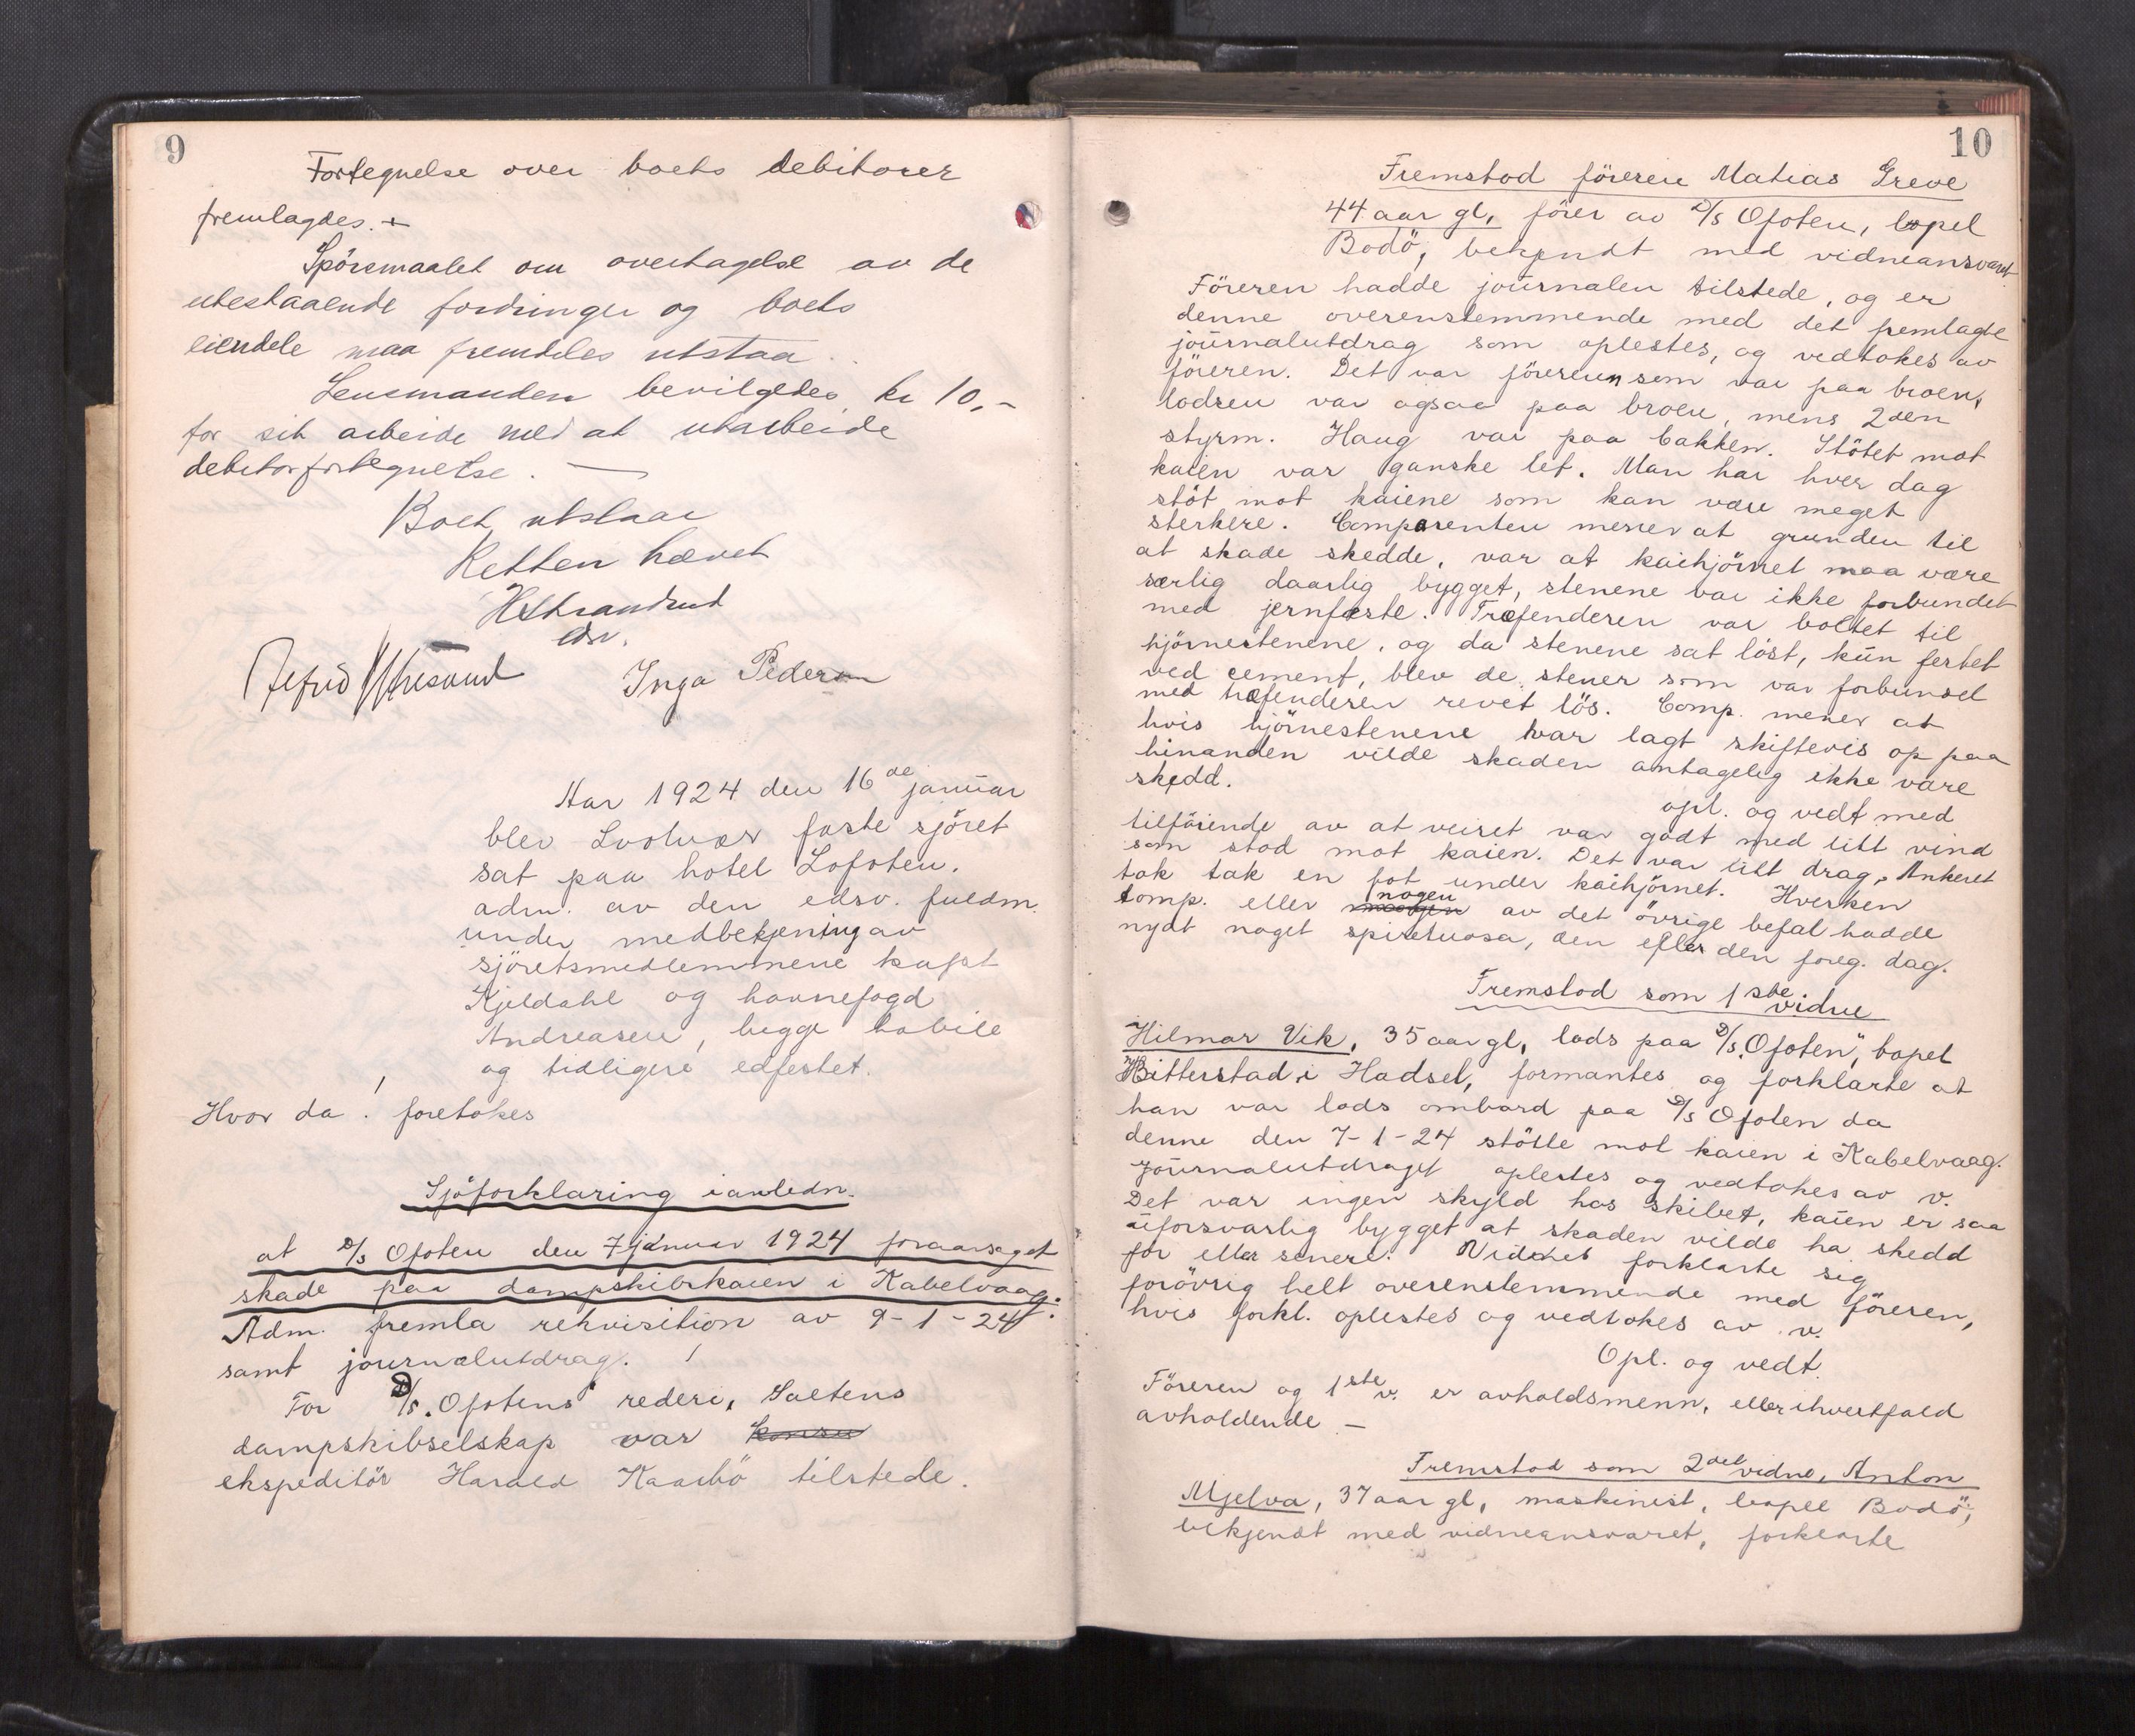 9
Fortegnelse over boets debitorer
fremlagdes. +
Spörsmaalet om overtagelse av de
utestaaende fordringer og boets
eiendele maa fremdeles utstaa.
Lensmanden bevilgedes kr 10,-
for sit arbeide med at utarbeide
debitorfortegnelse. —
Boet utstaar
Retten hævet
HStrandrud
edsv.
Inga Pedersen
Aar 1924 den 16de januar
blev Svolvær faste sjöret
sat paa hotel Lofoten.
adm. av den edsv. fuldm.
under medbetjening av
sjöretsmedlemmene kapt
Kjeldahl og havnefogd
Andreasen, begge habile
og tidligere edfestet.
Hvor da ! foretokes
Sjöforklaring i anledn.
at D/S Ofoten den 7 januar 1924 foraarsaget
skade paa dampskibskaien i Kabelvaag.
Adm. fremla rekvisition av 9-1-24
samt journalutdrag. !
For D/S "Ofotens" rederi, Saltens
dampskibselskap var konsu
ekspeditör Harald Kaarbö tilstede.
10
Fremstod föreren Matias Greve
44 aar gl, förer av D/S Ofoten, bopel
Bodö, bekjendt med vidneansvaret.
Föreren hadde journalen tilstede, og er
denne overenstemmende med det fremlagte
journalutdrag som oplestes, og vedtokes av
föreren. Det var föreren som var paa broen,
lodsen var ogsaa paa broen, mens 2den
styrm. Haug var paa bakken. Stötet mot
kaien var ganske let. Man har hver dag
stöt mot kaiene som kan være meget
sterkere. Comparenten mener at grunden til
at skade skedde, var at kaihjörnet maa være
særlig daarlig bygget, stenene var ikke forbundet
med jernfæste. Træfenderen var boltet til
hjörnestenene, og da stenene sat löst, kun festet
ved cement, blev de stener som var forbunset
med træfenderen revet lös. Comp. mener at
hvis hjörnestenene var lagt skiftevis op paa
hinanden vilde skaden antagelig ikke være
skedd.
opl. og vedt med
tilföiende av at veiret var godt med litt vind
som stod mot kaien. Det var litt drag. Ankeret
tok tak en fot under kaihjörnet. Hverken
comp. eller nogen av det övrige befal hadde
nydt noget spirituosa, den eller den foreg. dag.
Fremstod som 1ste vidne
Hilmar Vik, 35 aar gl, lods paa D/S "Ofoten", bopel
Hitterstad i Hadsel, formantes og forklarte at
han var lods ombord paa D/S Ofoten da
denne den 7-1-24 stötte mot kaien i Kabelvaag.
Journalutdraget oplestes og vedtokes av v.
Det var ingen skyld hos skibet, kaien er saa
uforsvarlig bygget at skaden vilde ha skedd
för eller senere. Vidnet forklarte sig
forövrig helt overenstemmende med föreren,
hvis forkl. oplestes og vedtokes av v.
Opl. og vedt.
Föreren og 1ste v. er avholdsmenn, eller ihvertfald
avholdende. —
Fremstod som 2det vidne, Anton
Mjelva, 37 aar gl, maskinist, bopel Bodö,
bekjendt med vidneansvaret, forklarte